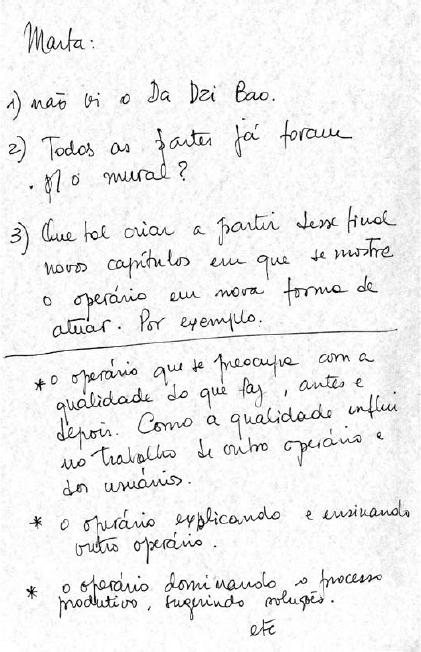 Marta:
1) não vi o Da Dzi Bao.
2) Todas as partes já foram
. p/ o mural?
3) Que tal criar a partir desse final
novos capítulos em que se mostre
o operário em nova forma de
atuar. Por exemplo.
* o operário que se preocupa com a
qualidade do que faz, antes e
depois. Como a qualidade influi
no trabalho de outro operário e
dos usuários.
* o operário explicando e ensinando
outro operário.
* o operário dominando o processo
produtivo, sugerindo soluções.
etc